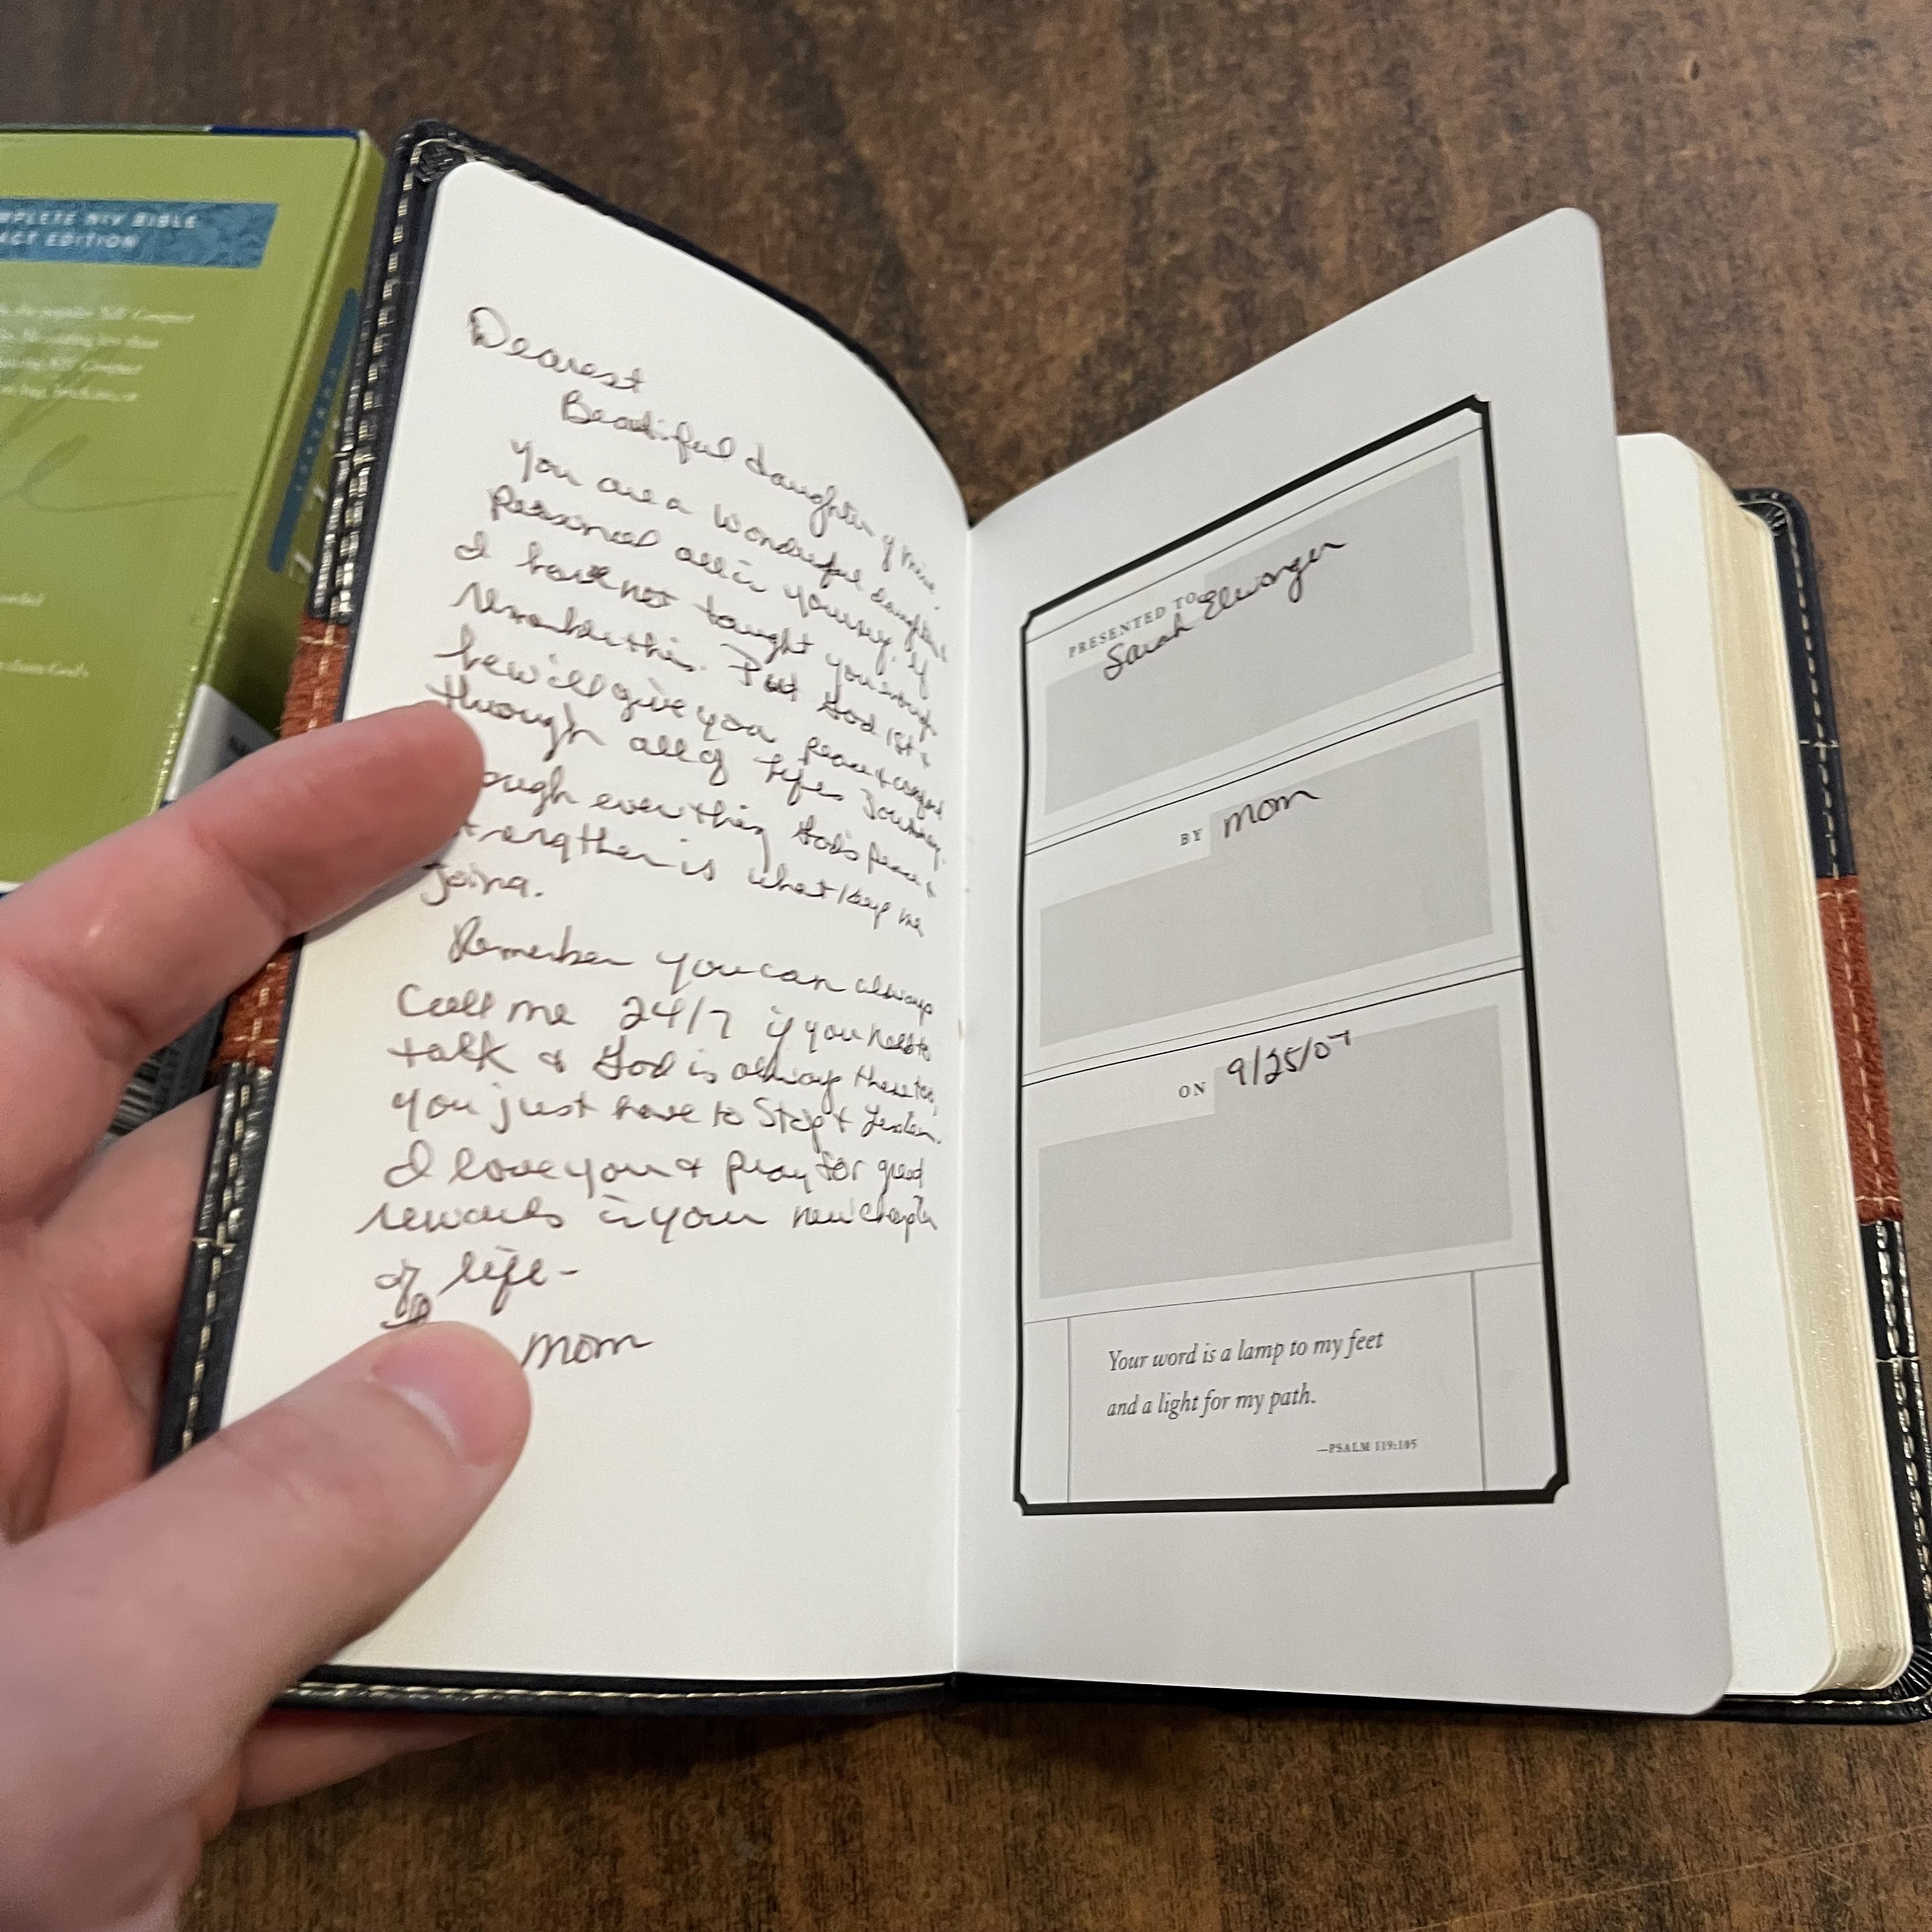 COMPLETE NIV BIBLE
EDITION
Dearest
Beautiful daughter of mine.
You are a wonderful daughter &
all in
I have not taught you enough
this. Put God 1st &
he will give you peace & comfort
through all of lifes Journey.
everthing God's peace &
is what keep me
going.
Remember you can always
Call me 24/7 if you need to
talk & God is always there too,
you just have to Stop & Listen.
I love you & pray for good
rewards in your new chapter
of life -
Mom
PRESENTED TO
Sarah Elwanger
BY mom
ON 9/25/07
Your word is a lamp to my feet
and a light for my path.
—PSALM 119:105